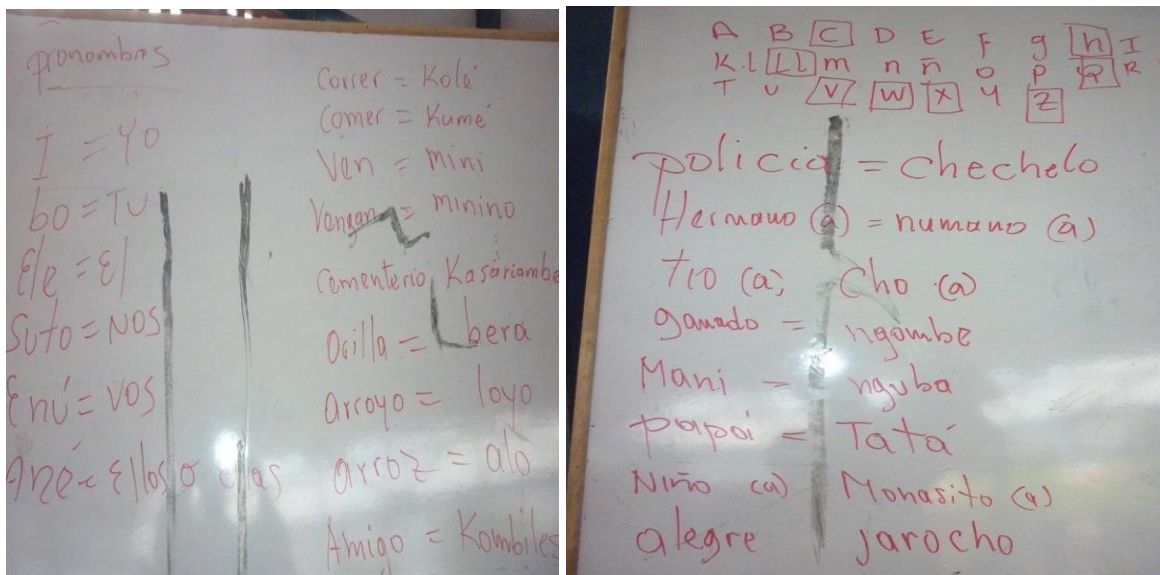 pronombres
I = Yo
bo = TU
Ele = El
Suto = NOS
Enú = VOS
Ané = Ellos o Ellas
Correr = Kolé
Comer = Kumé
Ven = mini
Vengan = minino
Cementerio Kasáriambe
Orilla = berá
arroyo = loyo
arroz = aló
Amigo = Kombiles
A B C D E F g h I
K.l Ll m n ñ o p Q R
T U V W X Y Z
policia = Chechelo
Hermano (a) = numano (a)
tio (a), Cho (a)
ganado = ngombe
Mani = nguba
papá = Tatá
Niño (a) Monasito (a)
alegre jarocho